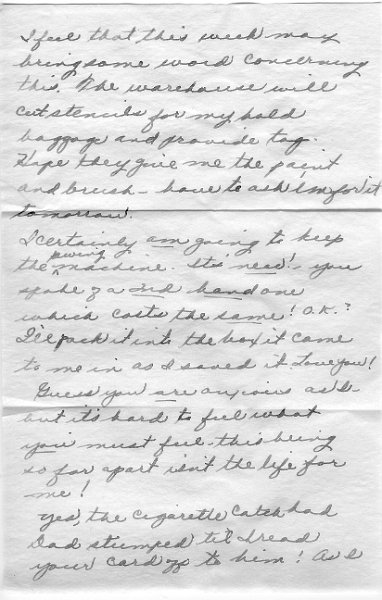 I feel that this week may
bring some word concerning
this. The warehouse will
cut stencils for my hold
baggage and provide tag.
Hope they give me the paint
and brush - have to ask 'em for it
tomorrow.
I certainly am going to keep
the sewing machine. It's new! - you
spoke of a 2nd hand one
which costs the same! O.K.?
I'll pack it into the box it came
to me in as I saved it. Love you!
Guess you are anxious as I -
but it's hard to feel what
you must feel - this being
so far apart isn't the life for
me!
Yes, the cigarette catch had
Dad stumped 'til I read
your card to him! As I